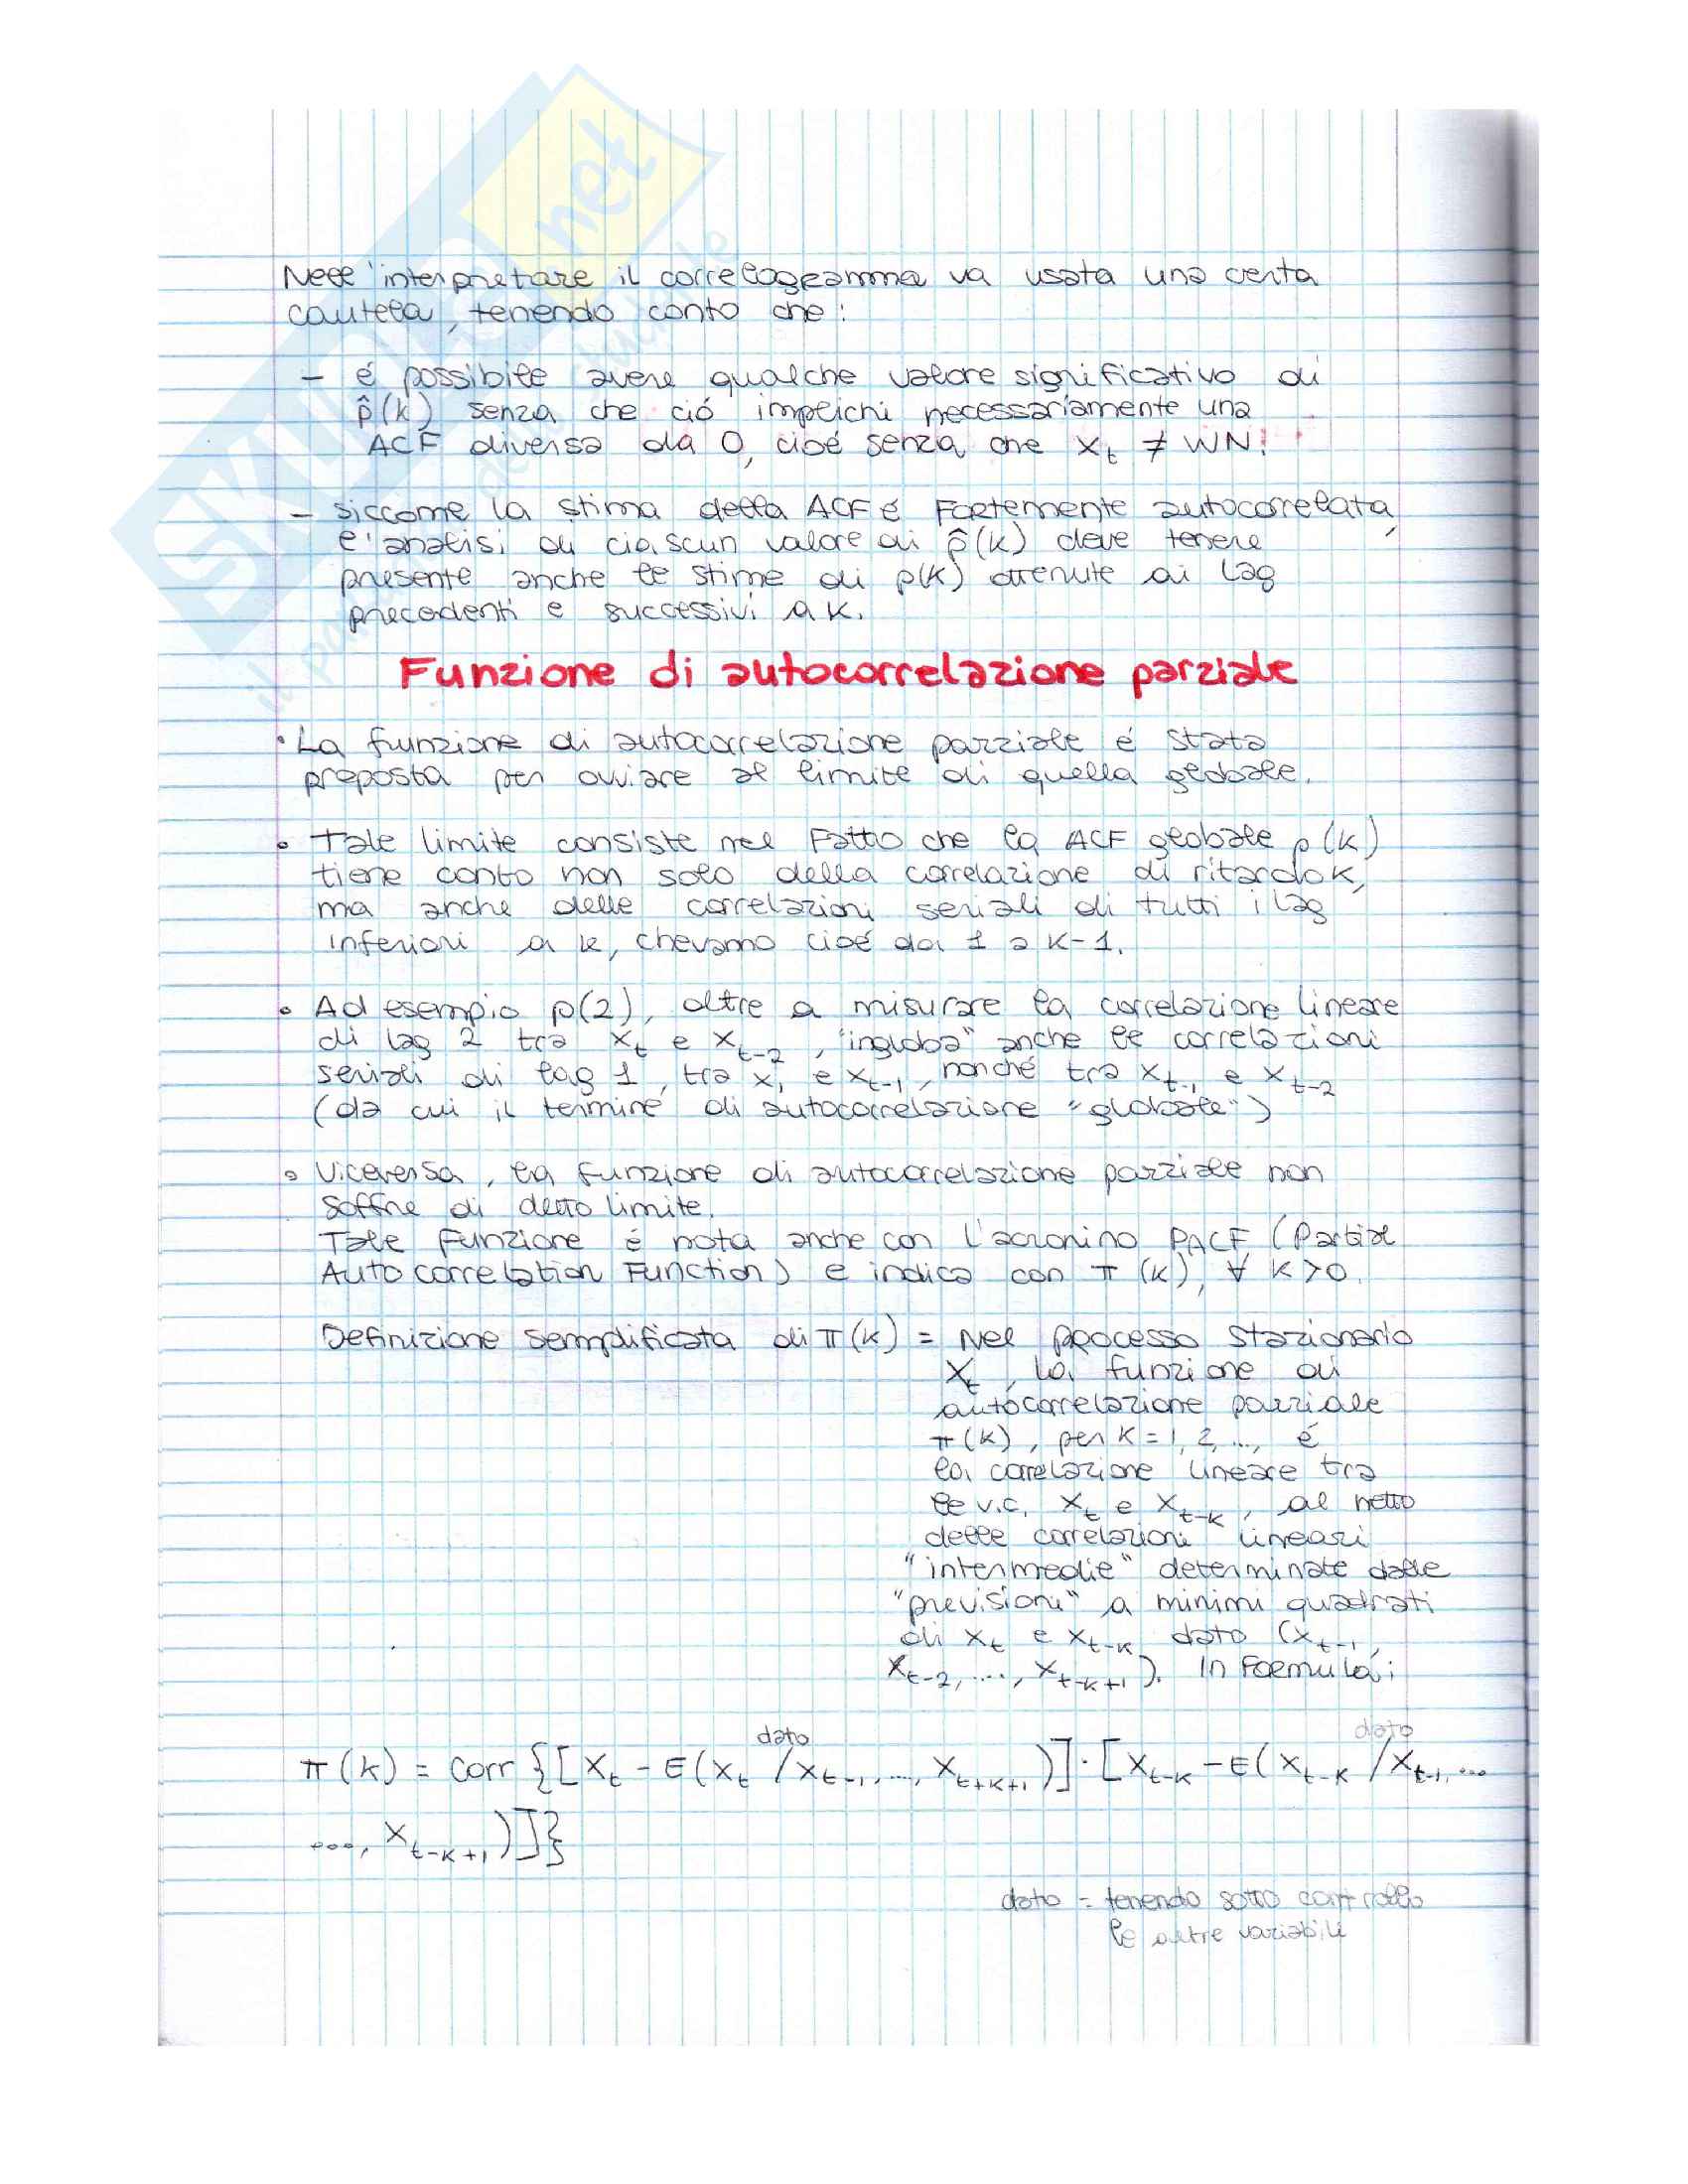 SKUOLA.net
il portale dello studente
Nell'interpretare il correlogramma va usata una certa
cautela, tenendo conto che:
- é possibile avere qualche valore significativo di
ρ̂(k) senza che ció implichi necessariamente una
ACF diversa da 0, cioé senza che Xt ≠ WN!
- siccome la stima della ACF é fortemente autocorrelata,
l'analisi di ciascun valore di ρ̂(k) deve tenere
presente anche le stime di ρ(k) ottenute ai lag
precedenti e successivi a k.
Funzione di autocorrelazione parziale
• La funzione di autocorrelazione parziale é stata
proposta per ovviare al limite di quella globale.
• Tale limite consiste nel fatto che la ACF globale ρ(k)
tiene conto non solo della correlazione di ritardo k,
ma anche delle correlazioni seriali di tutti i lag
inferiori a k, che vanno cioé da 1 a k-1.
• Ad esempio ρ(2), oltre a misurare la correlazione lineare
di lag 2 tra Xt e Xt-2, "ingloba" anche le correlazioni
seriali di lag 1, tra X, e Xt-1, nonché tra Xt-1 e Xt-2
(da cui il termine di autocorrelazione "globale")
• Viceversa, la funzione di autocorrelazione parziale non
soffre di detto limite.
Tale funzione é nota anche con l'acronino PACF (Partial
Auto correlation Function) e indica con π(k), ∀ k>0.
Definizione semplificata di π(k) = Nel processo stazionario
Xt, la funzione di
autocorrelazione parziale
π(k), per k=1, 2, ..., é
la correlazione lineare tra
le v.c. Xt e Xt-k, al netto
delle correlazioni lineari
"intermedie" determinate dalle
"previsioni" a minimi quadrati
di Xt e Xt-k dato (Xt-1,
Xt-2, ..., Xt-k+1). In formula:
dato dato
π(k) = Corr {[Xt - E(Xt / Xt-1, ..., Xt+k+1)]·[Xt-k - E(Xt-k / Xt-1, ...
..., Xt-k+1)]}
dato = tenendo sotto controllo
le altre variabili